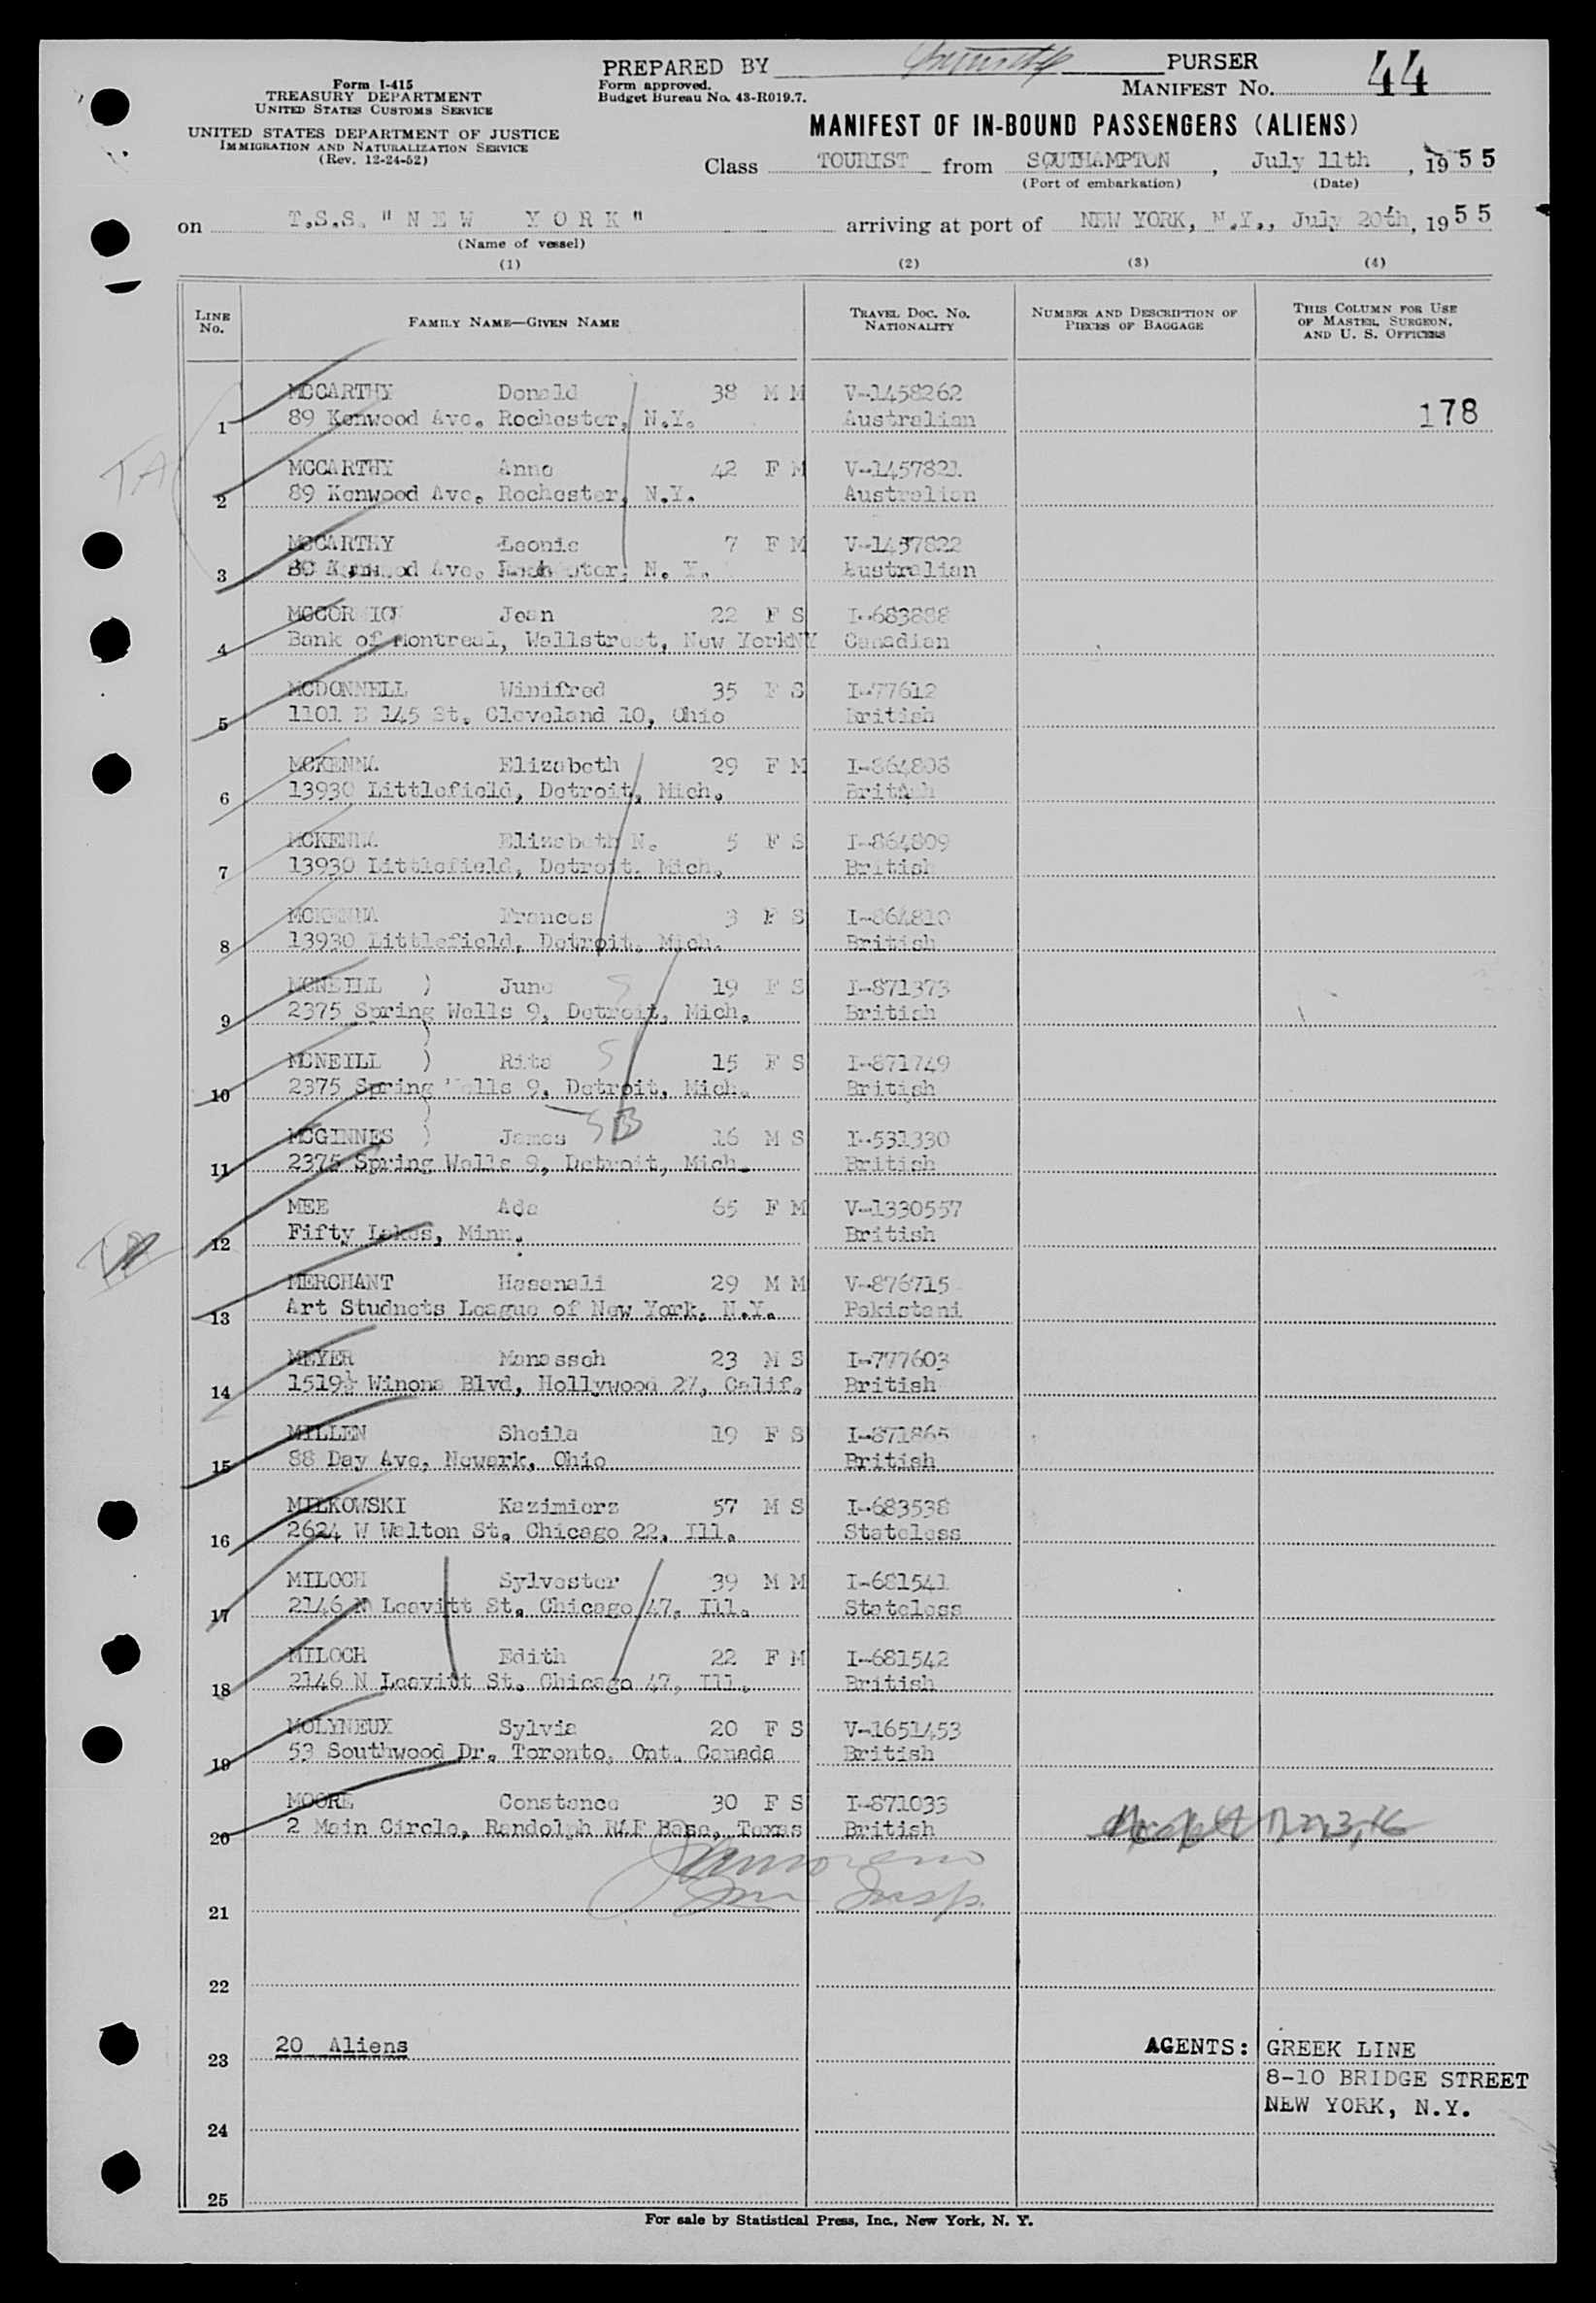 PREPARED BY PURSER
Form I-415
TREASURY DEPARTMENT
UNITED STATES CUSTOMS SERVICE
UNITED STATES DEPARTMENT OF JUSTICE
IMMIGRATION AND NATURALIZATION SERVICE
(Rev. 12-24-52)
Form approved.
Budget Bureau No. 43-R019.7.
MANIFEST No. 44
MANIFEST OF IN-BOUND PASSENGERS (ALIENS)
Class TOURIST from SOUTHAMPTON, July 11th, 1955
(Port of embarkation) (Date)
on T.S.S. "NEW YORK" arriving at port of NEW YORK, N.Y., July 20th, 1955
(Name of vessel)
(1) (2) (3) (4)
LINE No. FAMILY NAME—GIVEN NAME TRAVEL DOC. No. NATIONALITY NUMBER AND DESCRIPTION OF PIECES OF BAGGAGE THIS COLUMN FOR USE OF MASTER, SURGEON, AND U. S. OFFICERS
MCCARTHY Donald 38 M M V-1458262
1 89 Kenwood Ave. Rochester, N.Y. Australian 178
TA
MCCARTHY Anne 42 F M V-1457821
2 89 Kenwood Ave. Rochester, N.Y. Australian
MCCARTHY Leonie 7 F M V-1457822
3 Ave. N. Y. Australian
MCCORMICK Jean 22 F S I-683888
4 Bank of Montreal, Wallstreet, New YorkNY Canadian
MCDONNELL Winifred 35 F S I-77612
5 1101 E 145 St. Cleveland 10, Ohio British
MCKENNA Elizabeth 29 F M I-864808
6 13930 Littlefield, Detroit, Mich. British
MCKENNA Elizabeth N. 5 F S I-864809
7 13930 Littlefield, Detroit, Mich. British
MCKENNA Frances 3 F S I-864810
8 13930 Littlefield, Detroit, Mich. British
MCNEILL ) June S 19 F S I-871373
9 2375 Spring Wells 9, Detroit, Mich. British
)
MCNEILL ) Rita S 15 F S I-871749
10 2375 Spring Wells 9, Detroit, Mich. British
)
MCGINNES ) James SB 16 M S I-531330
11 2375 Spring Wells 9, Detroit, Mich. British
MEE Ada 65 F M V-1330557
12 Fifty Lakes, Minn. British
MERCHANT Hasanali 29 M M V-876715
13 Art Studnets League of New York, N.Y. Pakistani
MEYER Manasseh 23 M S I-777603
14 1519½ Winona Blvd, Hollywood 27, Calif. British
MILLEN Sheila 19 F S I-871865
15 88 Day Ave, Newark, Ohio British
MILKOWSKI Kazimierz 57 M S I-683538
16 2624 W Walton St. Chicago 22, Ill. Stateless
MILOCH Sylvester 39 M M I-681541
17 2146 N Leavitt St. Chicago 47, Ill. Stateless
MILOCH Edith 22 F M I-681542
18 2146 N Leavitt St. Chicago 47, Ill. British
MOLYNEUX Sylvia 20 F S V-1651453
19 53 Southwood Dr. Toronto, Ont. Canada British
MOORE Constance 30 F S I-871033
20 2 Main Circle, Randolph RAF Base, Texas British
Imm Insp.
21
22
23 20 Aliens AGENTS: GREEK LINE
8-10 BRIDGE STREET
NEW YORK, N.Y.
24
25
For sale by Statistical Press, Inc., New York, N. Y.